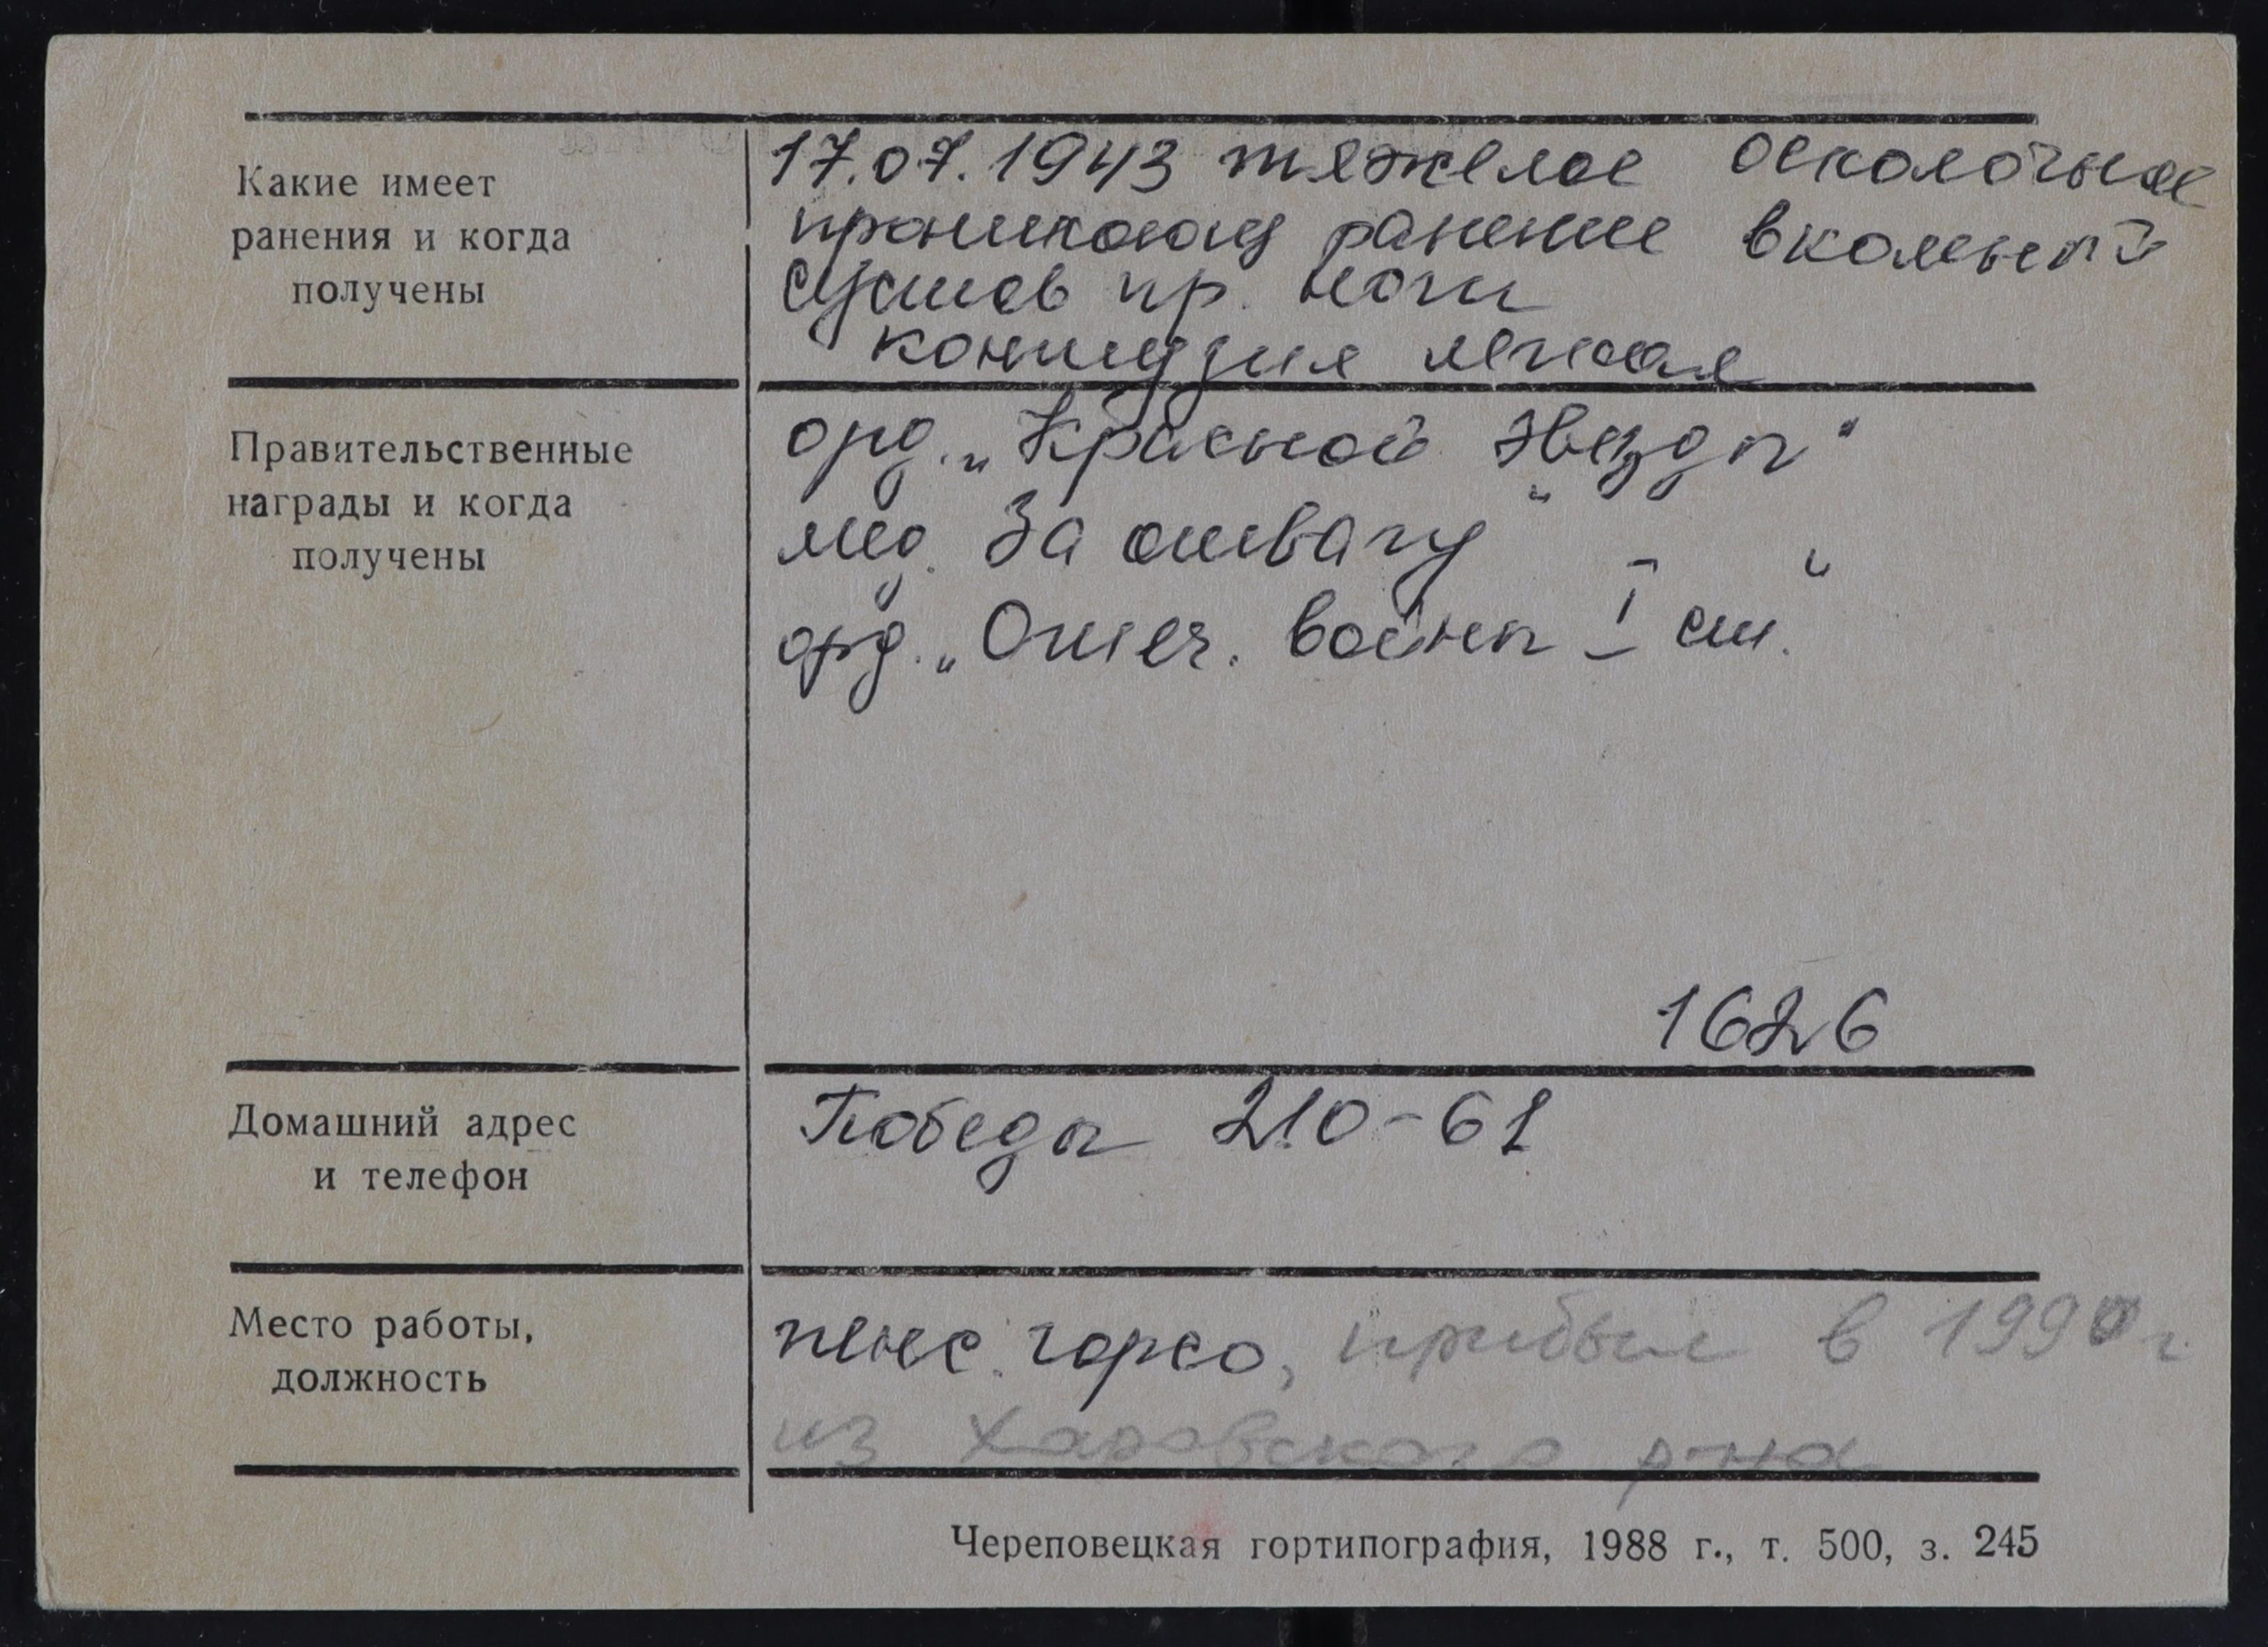 Какие имеет
ранения и когда
получены
17.07.1943 тяжелое осколочное
ранение в коленный
сустав пр. ноги
контузия легкая
Правительственные
награды и когда
получены
орд. „Красной Звезды“
мед. „За отвагу“
орд. „Отеч. войны I ст.“
1626
Домашний адрес
и телефон
Победы 210-61
Место работы,
должность
пенс. горсо, прибыл в 1990 г.
из Харовского р-на
Череповецкая гортипография, 1988 г., т. 500, з. 245